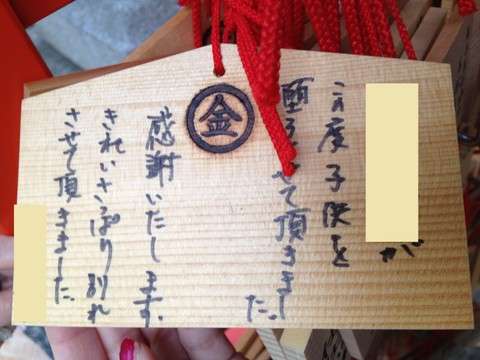 金
が
この度子供を
せて頂きまし
た。
感謝いたします。
きれいさっぱり別れ
させて頂きました。